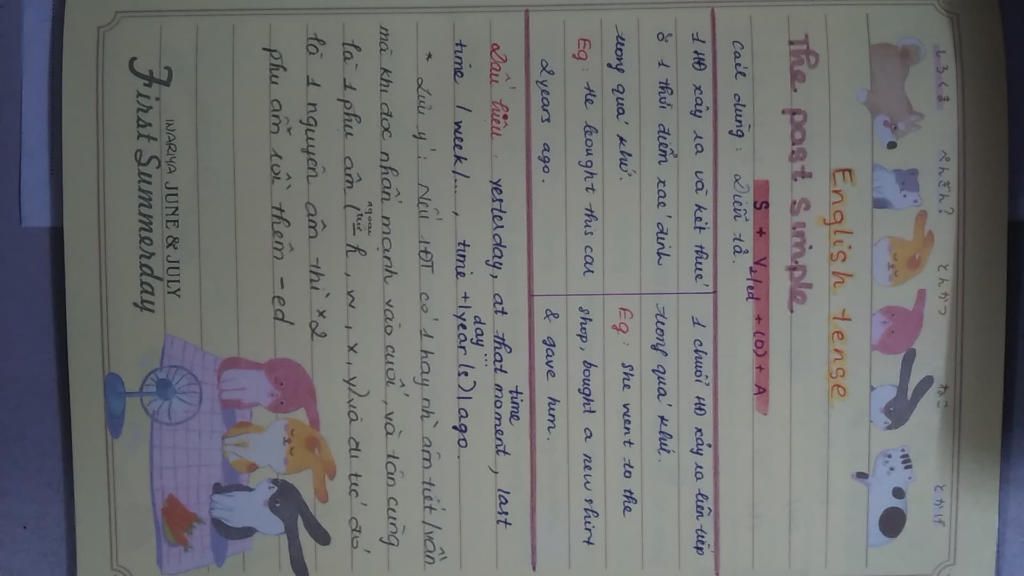 しろくま
ぺんぎん?
とんかつ
ねこ
とかげ
English tense
The past simple
S + V2/ed + (O) + A
Cách dùng: Diễn tả.
1 HĐ xảy ra và kết thúc
ở 1 thời điểm xác định
trong quá khứ.
Eg: He bought this car
2 years ago.
1 chuỗi HĐ xảy ra liên tiếp
trong quá khứ.
Eg: She went to the
shop, bought a new shirt
& gave him.
Dấu hiệu: yesterday, at that moment, last
time
time / week/..., time + 1 year (s) ago.
day
* Lưu ý: Nếu 1 ĐT có 1 hay nh` âm tiết/vần
mà khi đọc nhấn mạnh vào cuối, và tận cùng
là 1 phụ âm (trừ h, w, x, y) và đi trc đó
ngoại
là 1 nguyên âm thì x2
phụ âm rồi thêm -ed
INARMA JUNE & JULY
First Summerday